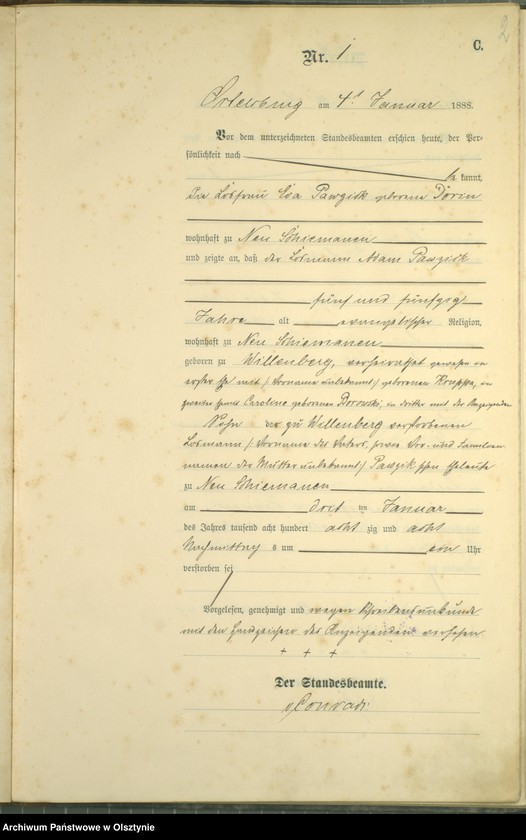 2
C.
Nr. 1
Ortelsburg am 4t Januar 1888.
Vor dem unterzeichneten Standesbeamten erschien heute, der Per-
sönlichkeit nach
be kannt,
Die Losfrau Eva Pawzick geborene Dorin
wohnhaft zu Neu Schiemanen
und zeigte an, daß der Losmann Adam Pawzick
fünf und fünfzig
Jahre alt evangelischer Religion,
wohnhaft zu Neu Schiemanen
geboren zu Willenberg, verheirathet gewesen in
erster Ehe mit / Vorname unbekannt / geborenen in
zweiter Caroline geborenen Borowski, in dritter mit der Anzeigenden
Sohn der zu Willenberg verstorbenen
Losmann / Vorname des Vaters, sowie Vor- und Familien-
namen der Mutter unbekannt / Pawzik schen Eheleute
zu Neu Schiemanen
am drit ten Januar
des Jahres tausend acht hundert acht zig und acht
Nachmittag s um ein Uhr
verstorben sei
Vorgelesen, genehmigt und wegen Schreibensunkunde
mit den Handzeichen der Anzeigenden versehen
+ + +
Der Standesbeamte.
Conradi
Archiwum Państwowe w Olsztynie